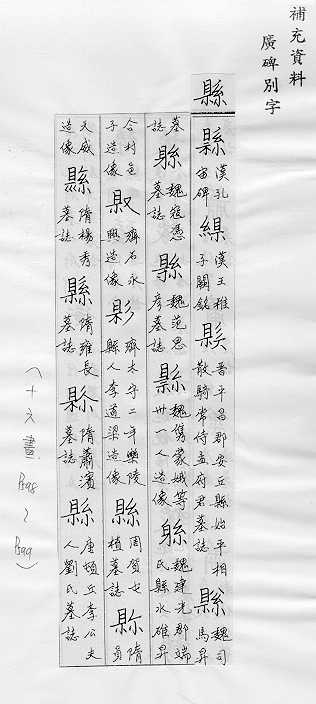 補充資料
廣碑別字
縣
縣 漢孔宙碑 漢王稚子闕銘 晉平昌郡安丘縣始平相散騎常侍孟府君墓誌 縣 魏司馬昇
墓誌 魏寇憑墓誌 縣 魏范思彥墓誌 縣 魏雋蒙娥等卅一人造像 魏建光郡端氏縣水碓昇
合村邑子造像 齊石永興造像 齊太守二年樂陵縣人李道梁造像 縣 周賀屯植墓誌 隋員
天威造像 縣 隋楊秀墓誌 縣 隋雍長墓誌 隋蕭濱墓誌 縣 唐頓丘李公夫人劉氏墓誌
(十六畫